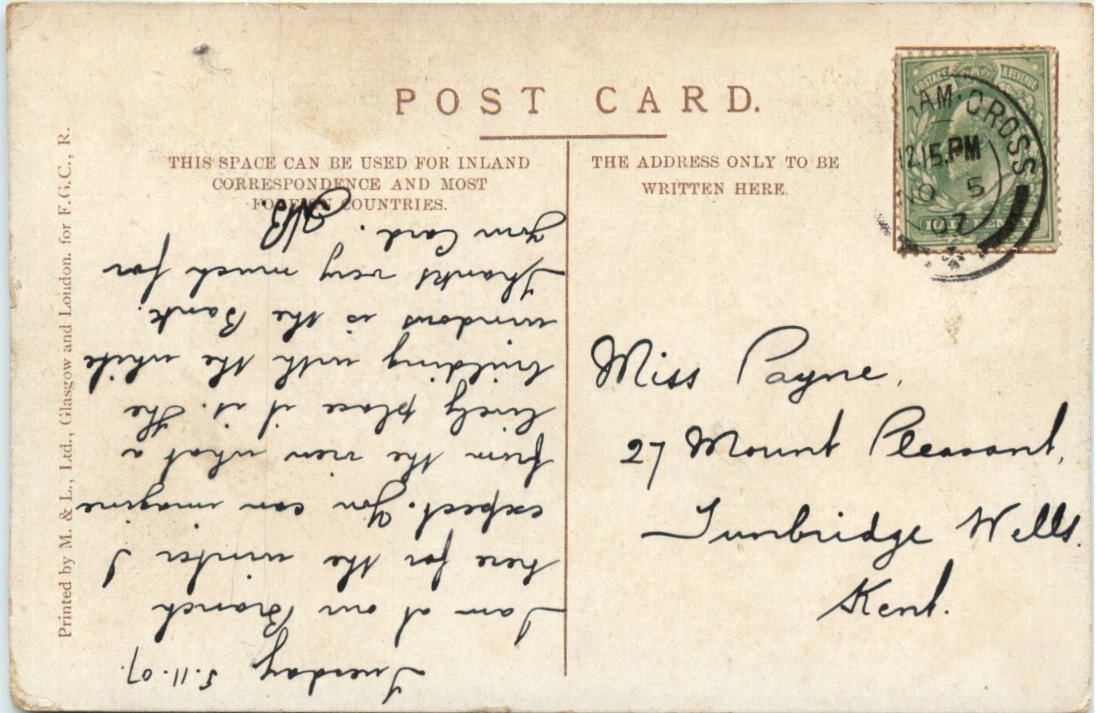 POST CARD.
THIS SPACE CAN BE USED FOR INLAND
CORRESPONDENCE AND MOST
FOREIGN COUNTRIES.
THE ADDRESS ONLY TO BE
WRITTEN HERE.
POSTAGE & REVENUE
AM. CROSS
12.15.PM
NO 5
07
Miss Payne,
27 Mount Pleasant,
Tunbridge Wells.
Kent.
Tuesday 5.11.07.
I am at our Branch
here for the winter I
expect. You can imagine
from the view what a
lively place it is. The
building with the white
windows is the Bank.
Thanks very much for
your Card.
Printed by M. & L., Ltd., Glasgow and London. for F.G.C., R.